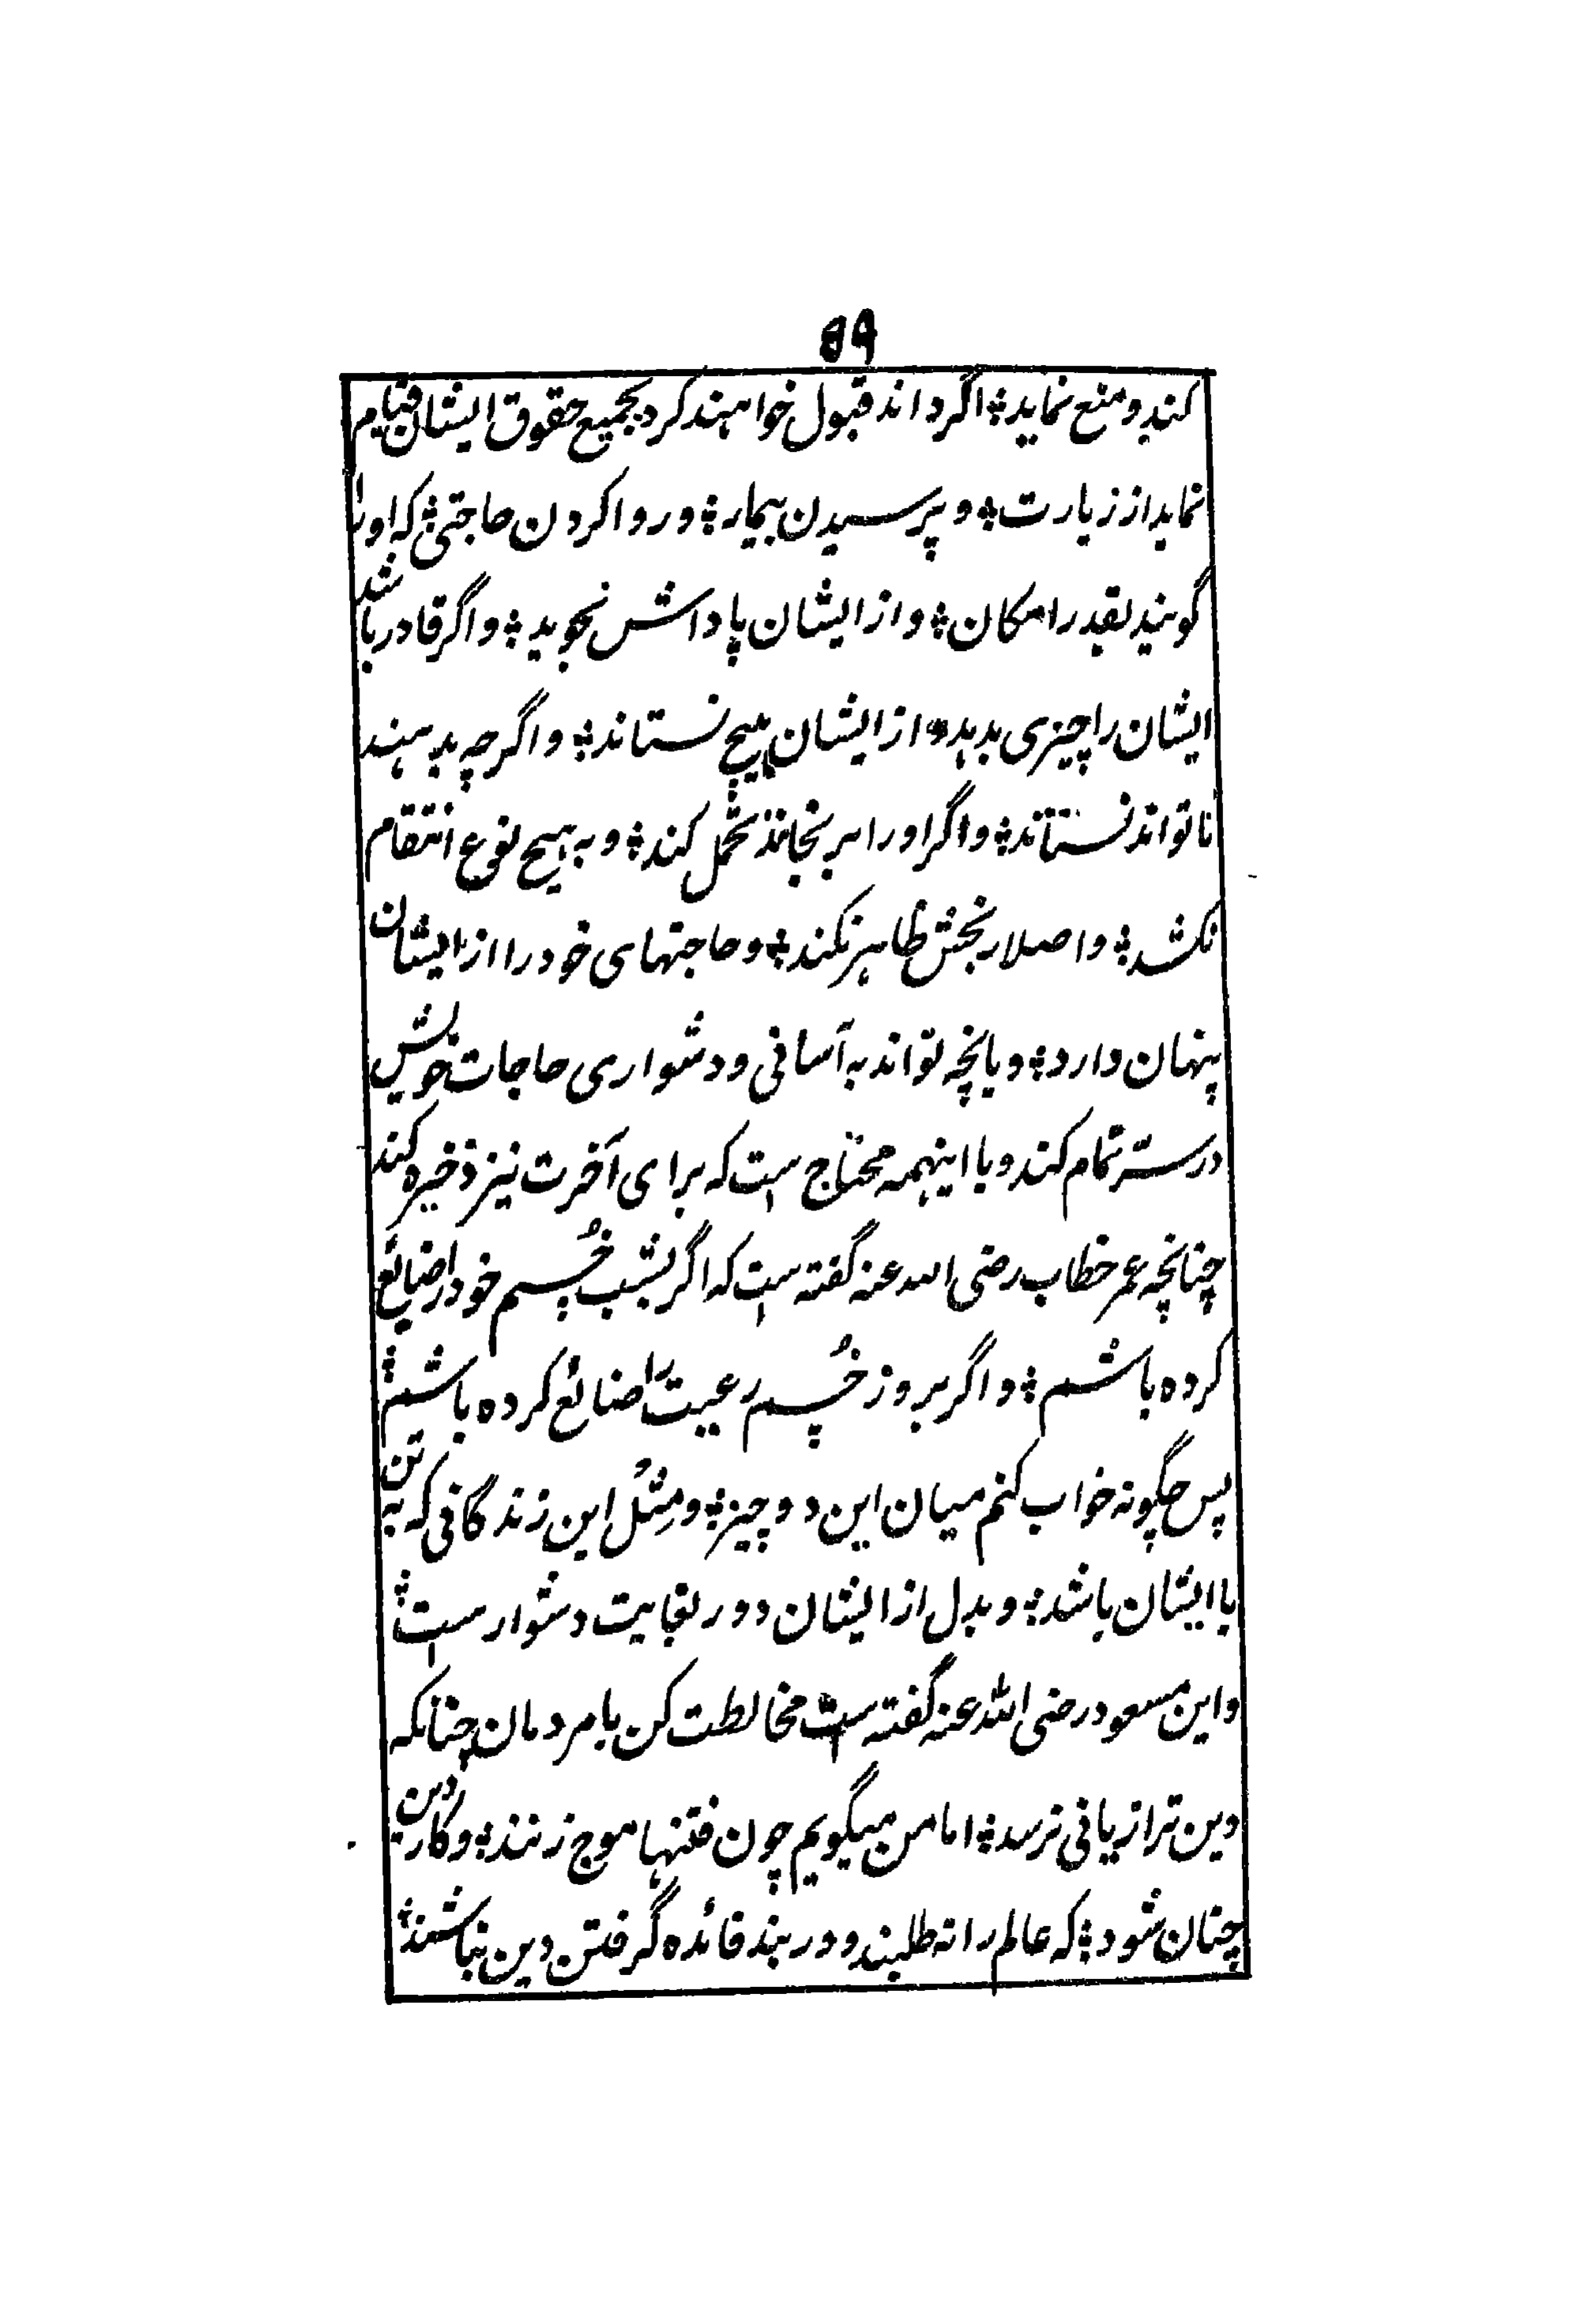 ۵۹
کند و منع نماید؛ اگر داند قبول خواهند کرد بجمیع حقوق ایشان قیام
نماید از زیارت؛ و پرسیدن بیمار؛ و روا کردن حاجتی؛ که او را
گویند بقدر امکان؛ و از ایشان پاداش نجوید؛ و اگر قادر باشد
ایشان را چیزی بدهد و از ایشان هیچ نستاند؛ و اگرچه بدهند
تا تواند نستاند؛ و اگر او را برنجانند تحمل کند؛ و به هیچ نوع انتقام
نکشد؛ و اصلا رنجش ظاهر نکند؛ و حاجتهای خود را از ایشان
پنهان دارد؛ و بانچه تواند به آسانی و دشواری حاجات خویش
در ستر تمام کند و با اینهمه محتاج است که برای آخرت نیز ذخیره کند
چنانچه عمر خطاب رضی الله عنه گفته است که اگر بشب خسپم خود را ضایع
کرده باشم؛ و اگر بروز خسپم رعیت را ضائع کرده باشم؛
پس چگونه خواب کنم میان این دو چیز؛ و مثل این زندگانی که به تن
با ایشان باشد؛ و بدل از ایشان دور بغایت دشوار است؛
و ابن مسعود رضی الله عنه گفته است مخالطت کن با مردمان چنانکه
دین ترا زیانی نرسد؛ اما من میگویم چون فتنها موج زنند؛ و کار دین
چنان شود؛ که عالم را نه طلبند و در بند فائده گرفتن دین نباشند؛